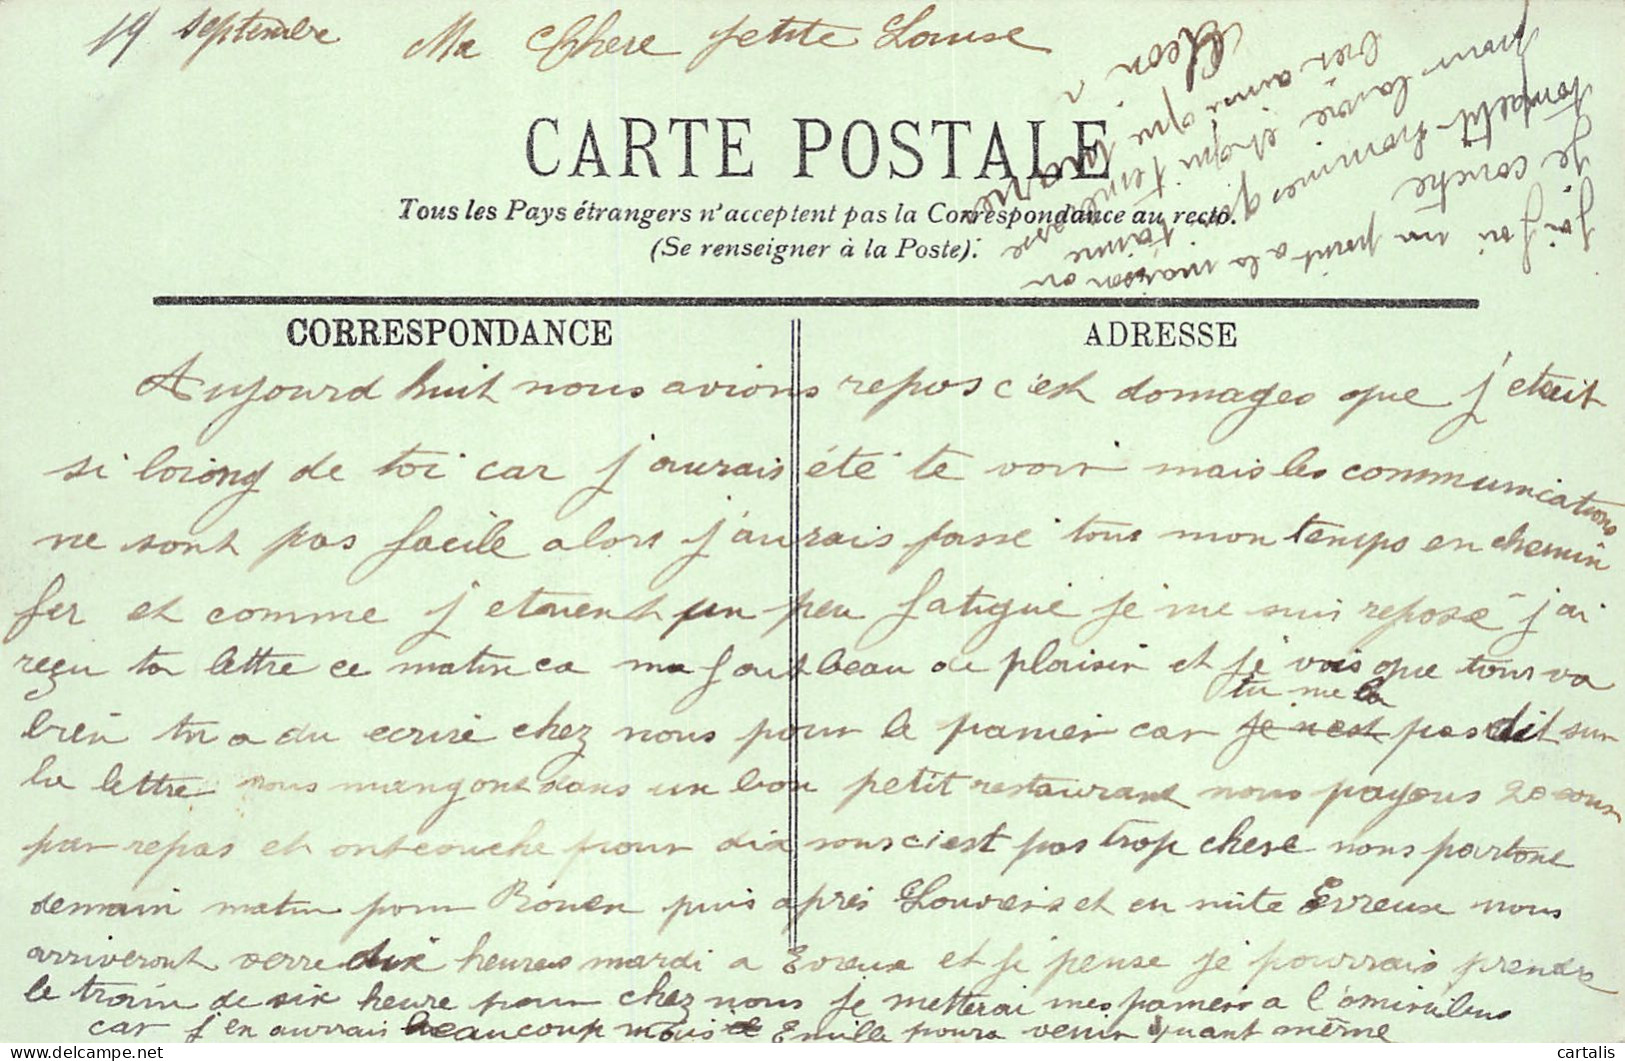 19 septembre Ma Chere petite Louise
CARTE POSTALE
Tous les Pays étrangers n'acceptent pas la Correspondance au recto.
(Se renseigner à la Poste).
CORRESPONDANCE
ADRESSE
Aujourd huit nous avions repos c'est domages que j'etait
si loiong de toi car j'aurais été te voir mais les communications
ne sont pas facile alors j'aurais passe tous mon temps en chemin
fer et comme j etaient un peu fatigué je me suis reposé j'ai
reçu ta lettre ce matin ca ma fait beau de plaisir et je vois que tous va
tu me la
bien tu a du ecrire chez nous pour le panier car je n'est pas dit sur
la lettre nous mangons dans un bon petit restaurant nous payons 20 sous
par repas et ont couche pour dix sous c'est pas trop chere nous partons
demain matin pour Rouen puis après Louviers et en suite Evreux nous
arriveront verre dix heures mardi a Evreux et je pense je pourrais prendre
le train de six heure pour chez nous je metterai mes panier a l'omnibus
car j'en aurrais beaucoup mais Emille poura venir quant même
j'ai un point a la maison ou
je couche
ton petit hommes qui t'aime
pour la vie et qui t'embrasse
bien ami
Leon